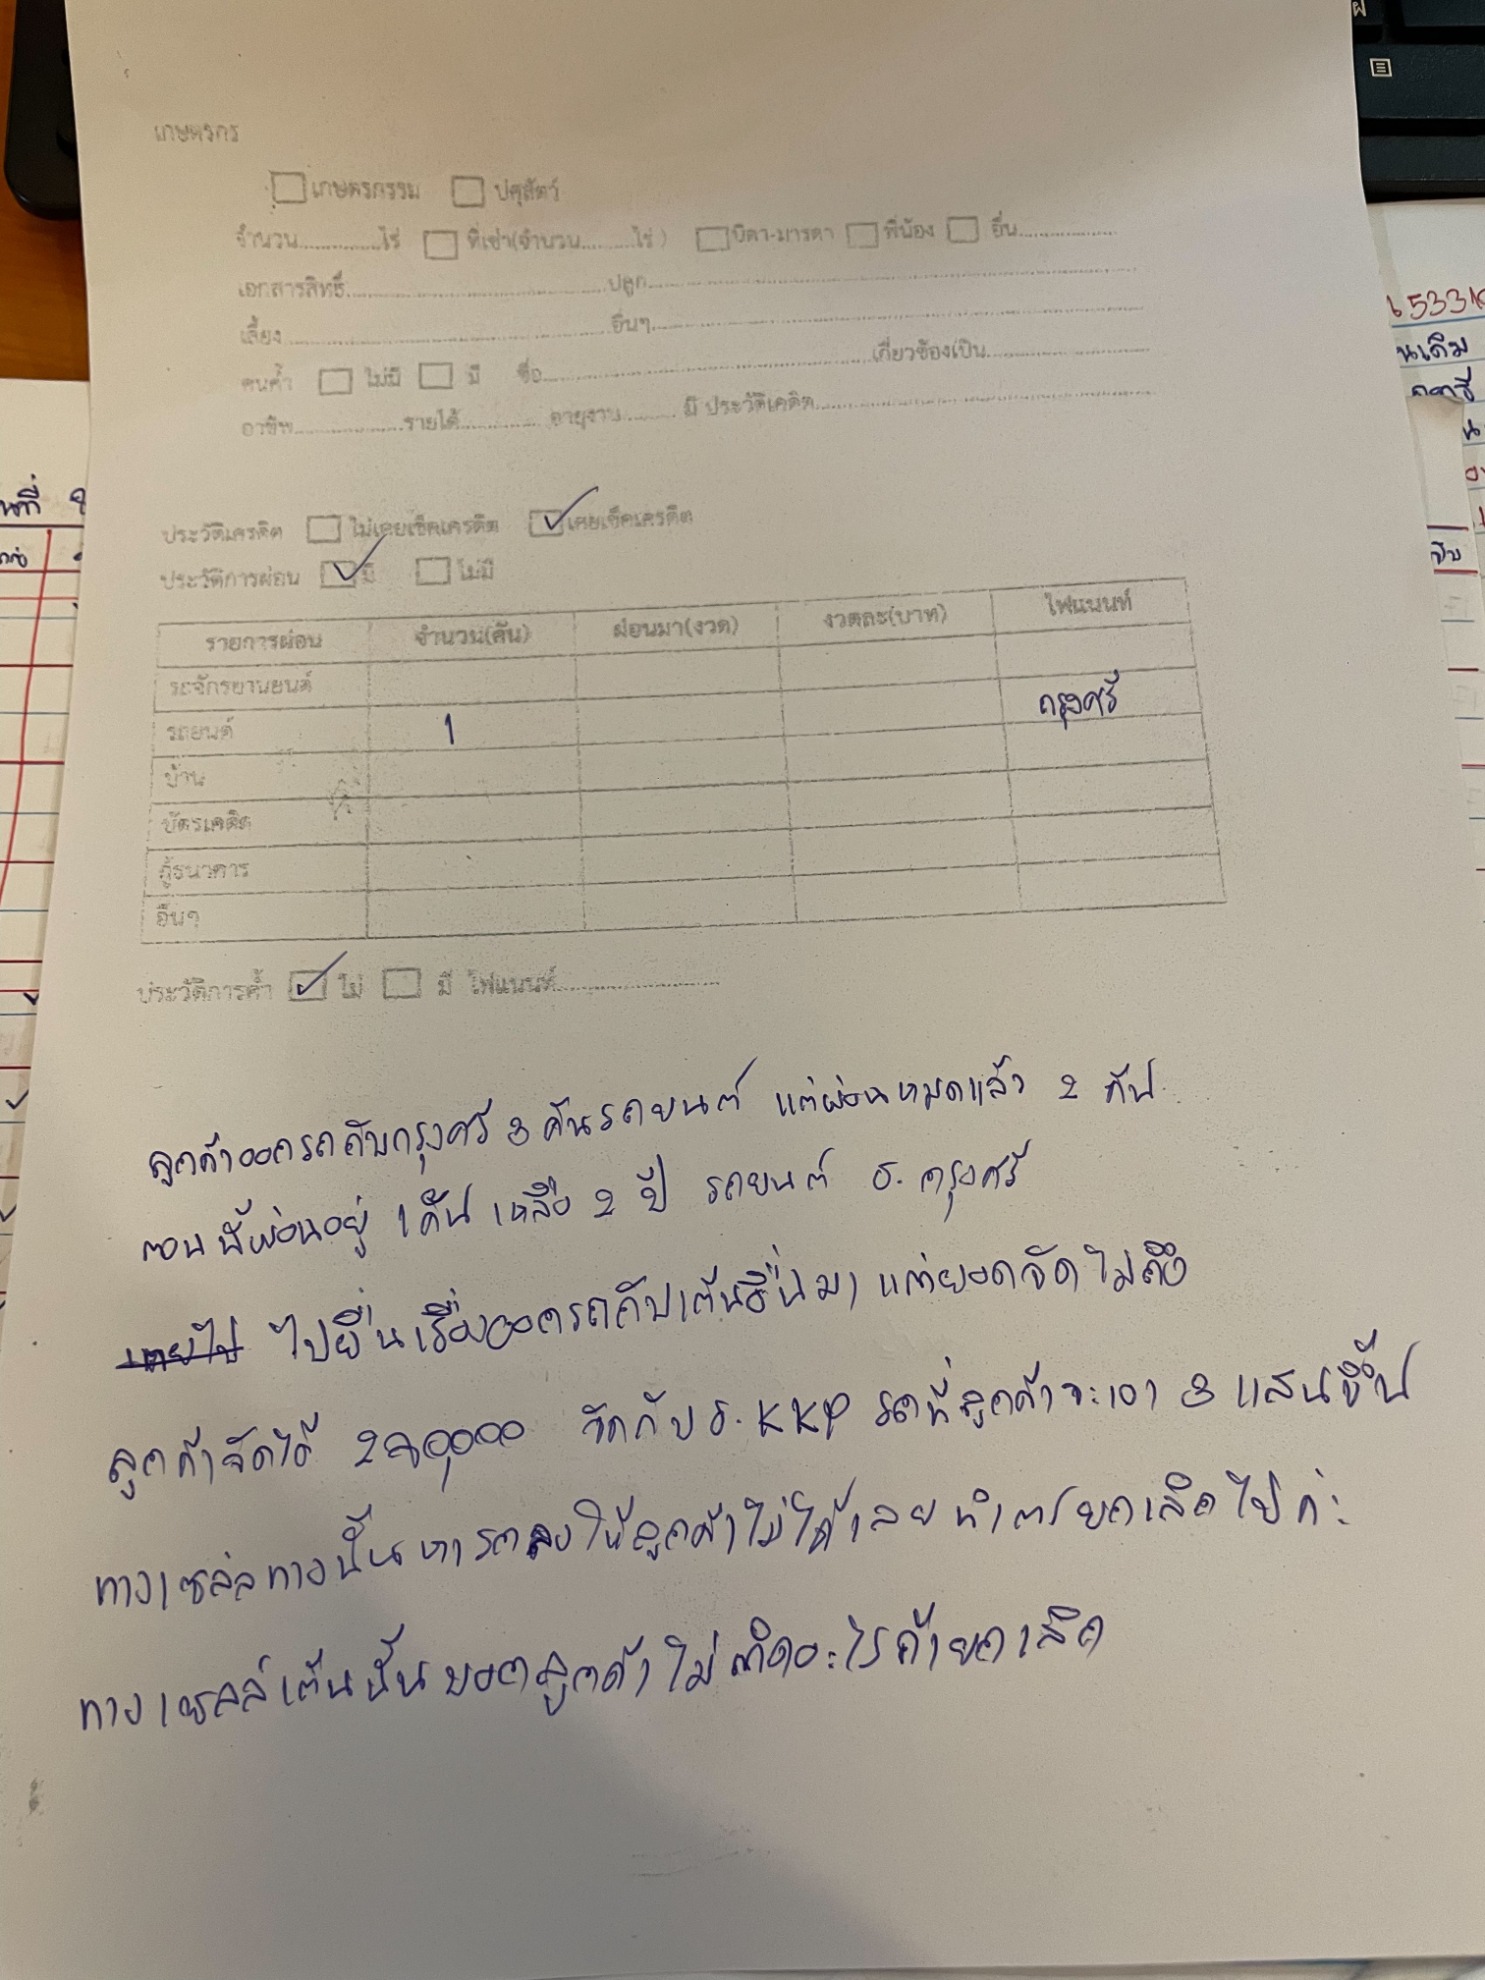 เกษตรกร
เกษตรกรรม ปศุสัตว์
จำนวน..............ไร่ ที่เช่า(จำนวน.........ไร่ ) บิดา-มารดา พี่น้อง อื่น.................
เอกสารสิทธิ์..............................................ปลูก..............................................
เลี้ยง..............................................อื่นๆ..............................................
คนค้ำ ไม่มี มี ชื่อ..............................................เกี่ยวข้องเป็น..........................
อาชีพ....................รายได้............... อายุงาน.......... มี ประวัติเคดิต..............................................
ประวัติเครดิต ไม่เคยเช็คเครดิต เคยเช็คเครดิต
ประวัติการผ่อน มี ไม่มี
รายการผ่อน จำนวน(คัน) ผ่อนมา(งวด) งวดละ(บาท) ไฟแนนท์
รถจักรยานยนต์
รถยนต์ 1 กรุงศรี
บ้าน
บัตรเคดิต
กู้ธนาคาร
อื่นๆ
ประวัติการค้ำ ไม่ มี ไฟแนนท์..............................
ลูกค้าออกรถกับกรุงศรี 3 คันรถยนต์ แต่ผ่อนหมดแล้ว 2 คัน
ตอนนี้ผ่อนอยู่ 1 คัน เหลือ 2 ปี รถยนต์ ธ. กรุงศรี
ไปยื่นเรื่องออกรถกับเต้นอื่นมา แต่ยอดจัดไม่ถึง
ลูกค้าจัดได้ จัดกับ ธ. KKP รถที่ลูกค้าจะเอา 3 แสนขึ้น
ทางเซลล์ทางนั้นหารถลงให้ลูกค้าไม่ได้เลย ยกเลิกไปค่ะ
ทางเซลล์เต้นนั้นบอกลูกค้าไม่ติดอะไรถ้ายกเลิก
653310
นเดิม
นที่